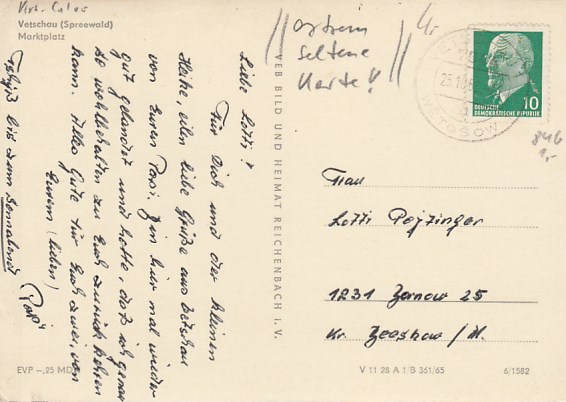 Krs. Calau
Vetschau (Spreewald)
Marktplatz
extrem
seltene
Karte!
Liebe Lotti!
Für Dich und der kleinen
Heike, viele liebe Grüße aus Vetschau
von Euren Papi. Bin hier mal wieder
gut gelandet und hoffe, daß ich genau
so wohlbehalten zu Euch zurück kehren
kann. Alles Gute für Euch zwei, von
Eurem (lieben)
Papi
Tschüß bis zum Sonnabend
VEB BILD UND HEIMAT REICHENBACH i. V.
DEUTSCHE
DEMOKRATISCHE REPUBLIK
10
846
1,-
Frau
Lotti Pejzinger
1231 Zernow 25
Kr Beeskow /M.
EVP –,25 MDN
V 11 28 A 1/B 361/65
6/1582